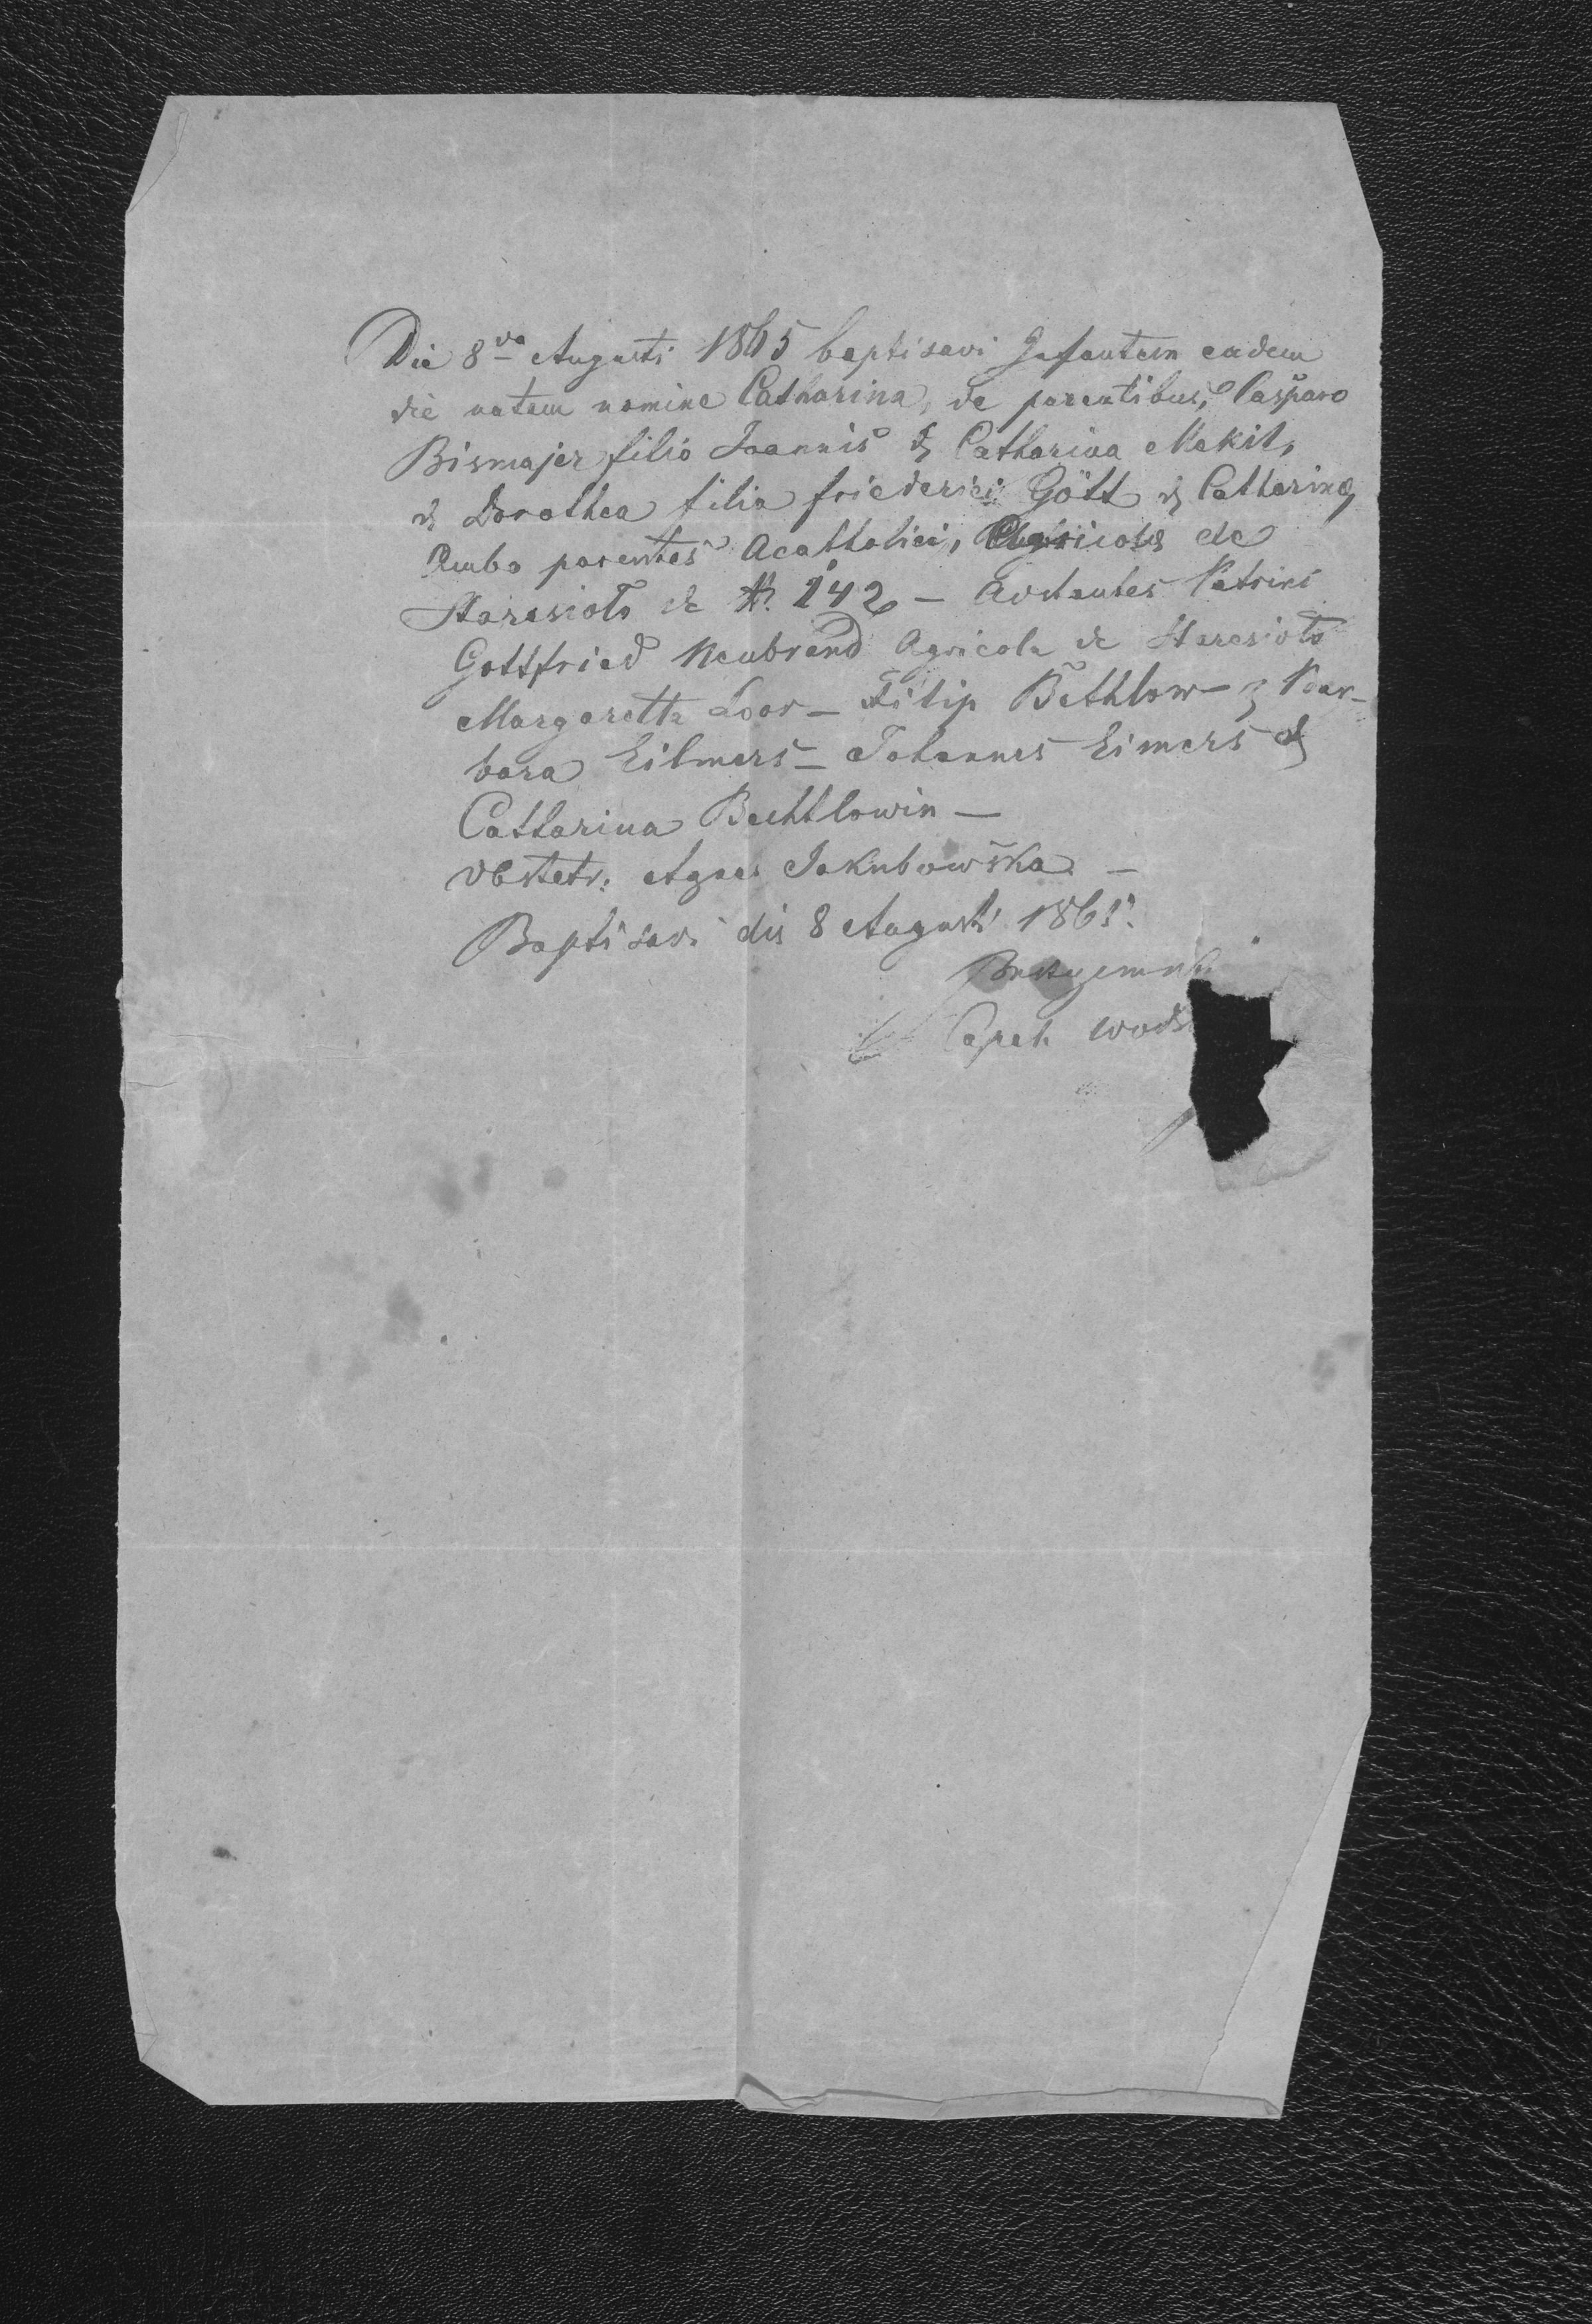 Die 8va Augusti 1865 baptisavi Infantem eadem
die natam nomine Catharina, de parentibus, Casparo
Bismajer filio Joannis & Catharina Makit,
& Dorothea filia friederici Gött & Catharina,
Ambo parentes Acattolici, Agricola de
Staresioło de N. 142 – Adstantes Patrini
Gottfried Neubrand Agricola de Staresioło
Margaretta Loor – Filip Bethlow – & Bar-
bara Eilmers – Johannes Eimers &
Cattarina Bechtlowin –
Obstetr: Agnes Jakubowska –
Baptisavi die 8 Augusti 1865.